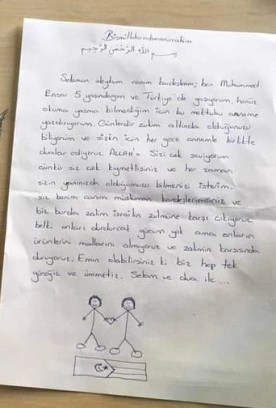 Bismillahirrahmanirrahim
بسم الله الرحمن الرحيم
Selamun aleyküm canım kardeşlerim; ben Muhammed
Ensar 5 yaşındayım ve Türkiye'de yaşıyorum henüz
okuma yazma bilmediğim için bu mektubu anneme
yazdırıyorum. Günlerdir zulüm altında olduğunuzu
biliyorum ve sizin için her gece annemle birlikte
dualar ediyoruz. ALLAH'ım sizi çok seviyorum
çünkü siz çok kıymetlisiniz ve her zaman
sizin yanınızda olduğumuzu bilmenizi isterim.
siz benim canım müslüman kardeşlerimsiniz ve
biz burda zalim israilin zulmüne karşı çıkıyoruz
belki onları durduracak gücüm yok ama onların
ürünlerini mallarını almıyoruz ve zalimin karşısında
duruyoruz. Emin olabilirsiniz ki biz hep tek
yüreğiz ve ümmetiz. Selam ve dua ile ...